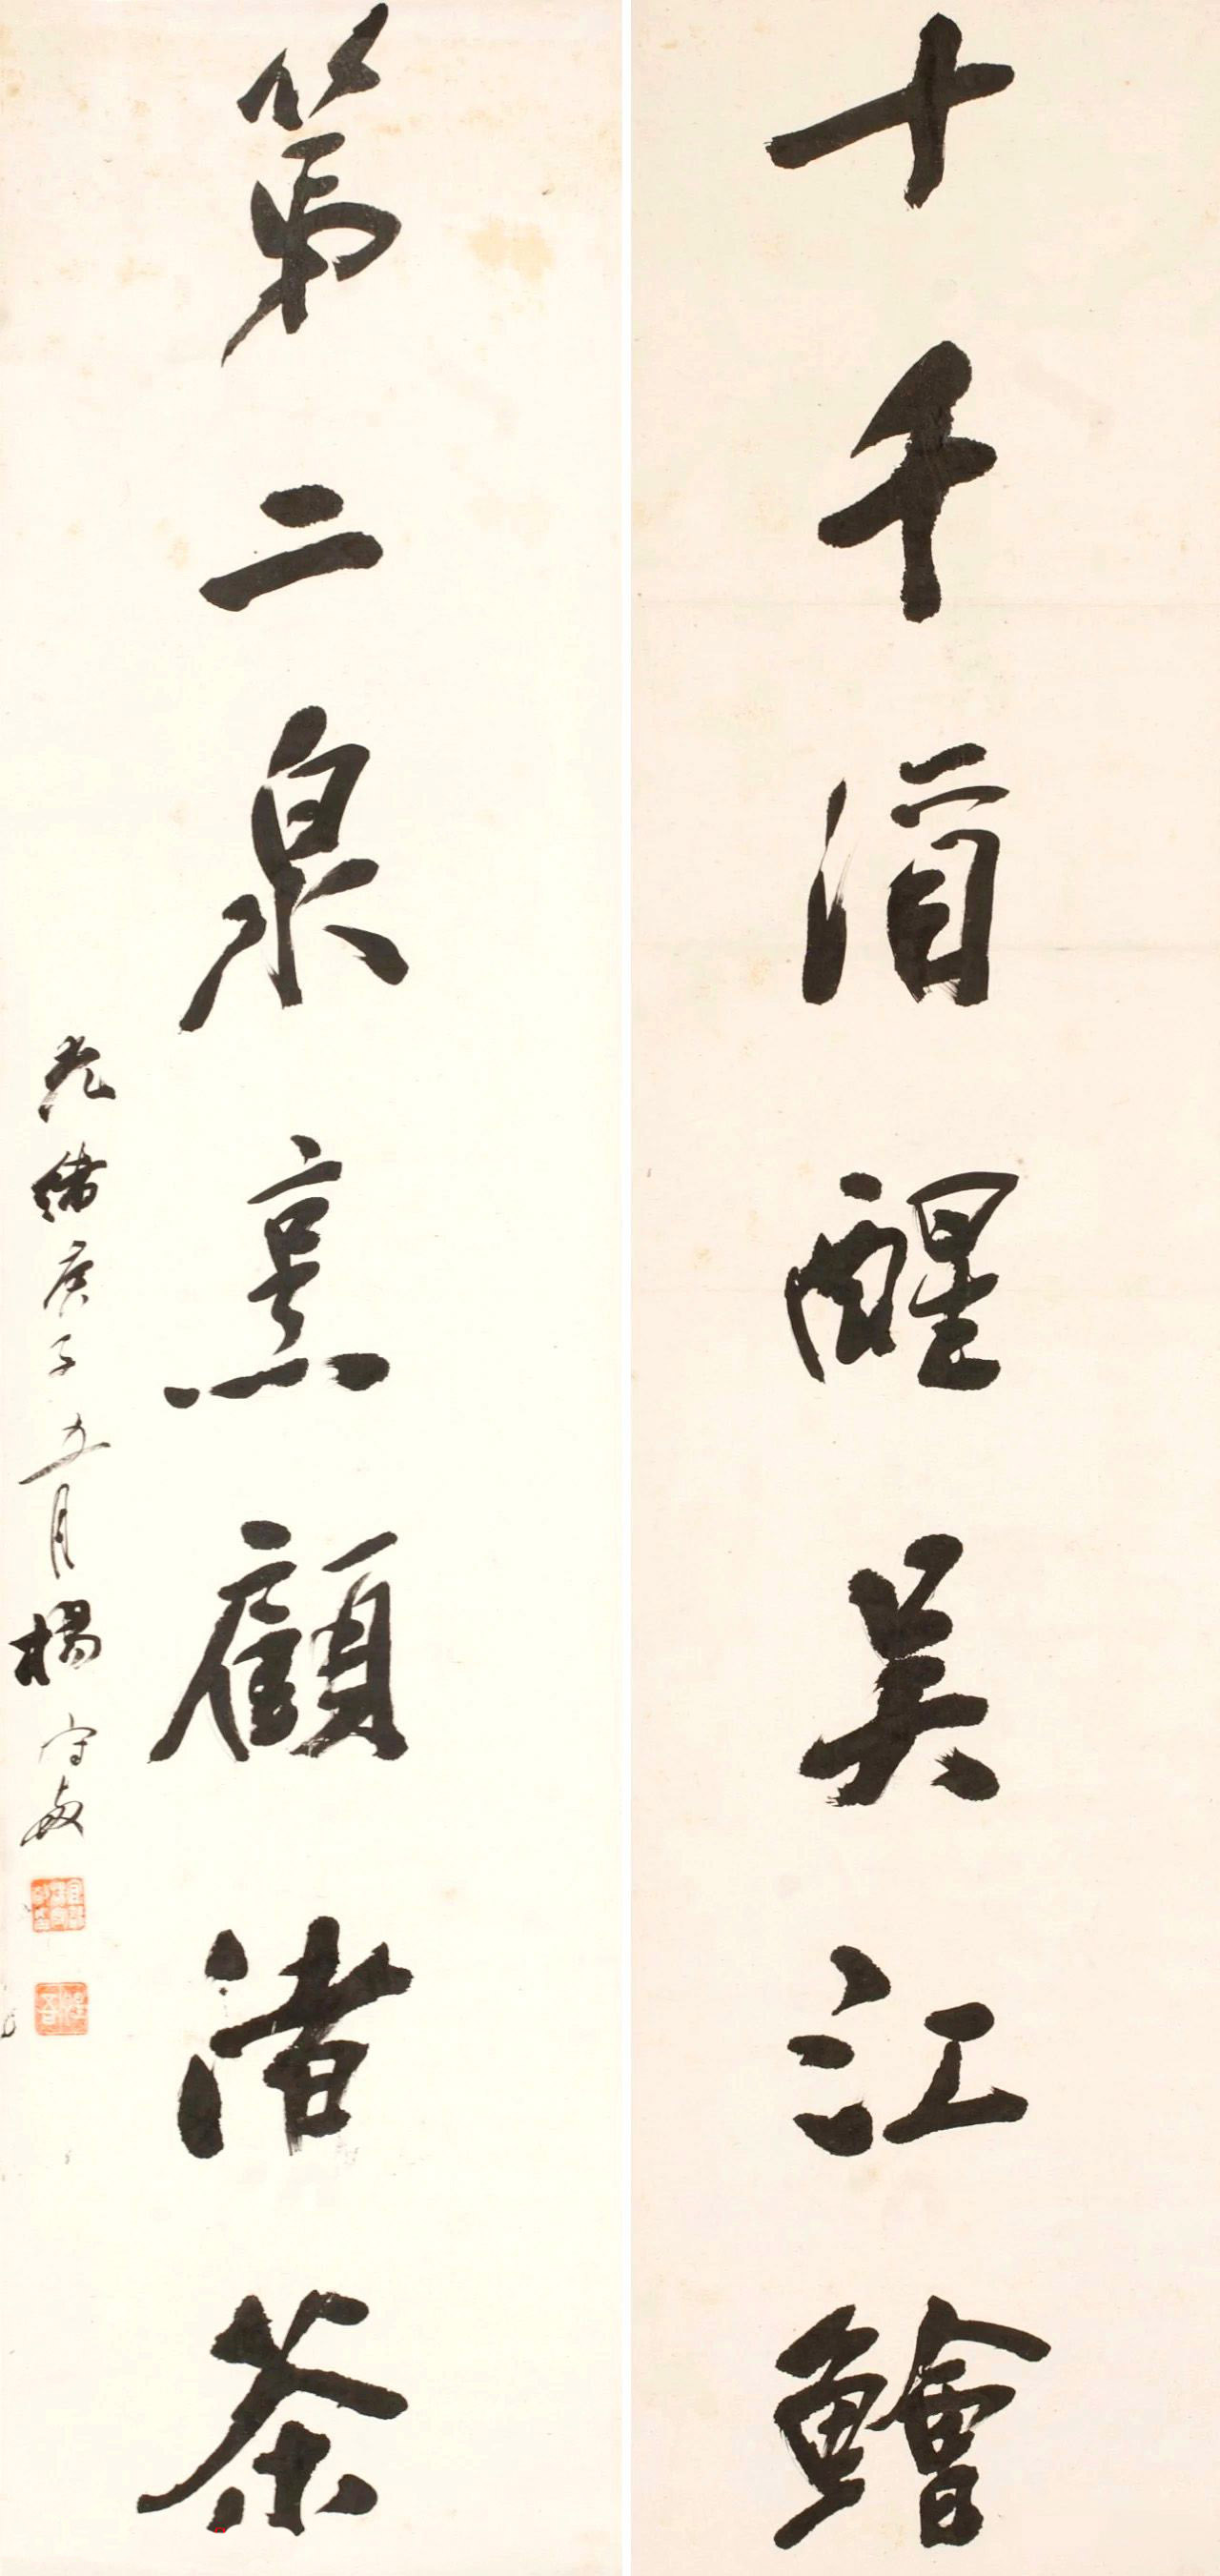 十千酒醒吳江鱠
第二泉烹顧渚茶
光緒庚子五月楊守敬
惺吾